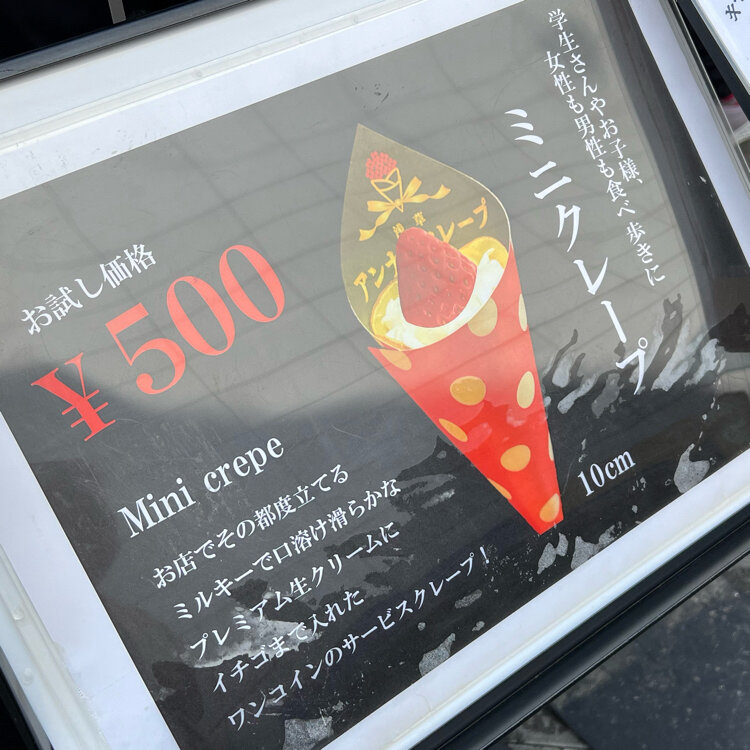 学生さんやお子様、
女性も男性も食べ歩きに
ミニクレープ
浅草
アンナ クレープ
お試し価格
¥500
Mini crepe
お店でその都度立てる
ミルキーで口溶け滑らかな
プレミアム生クリームに
イチゴまで入れた
ワンコインのサービスクレープ！
10cm